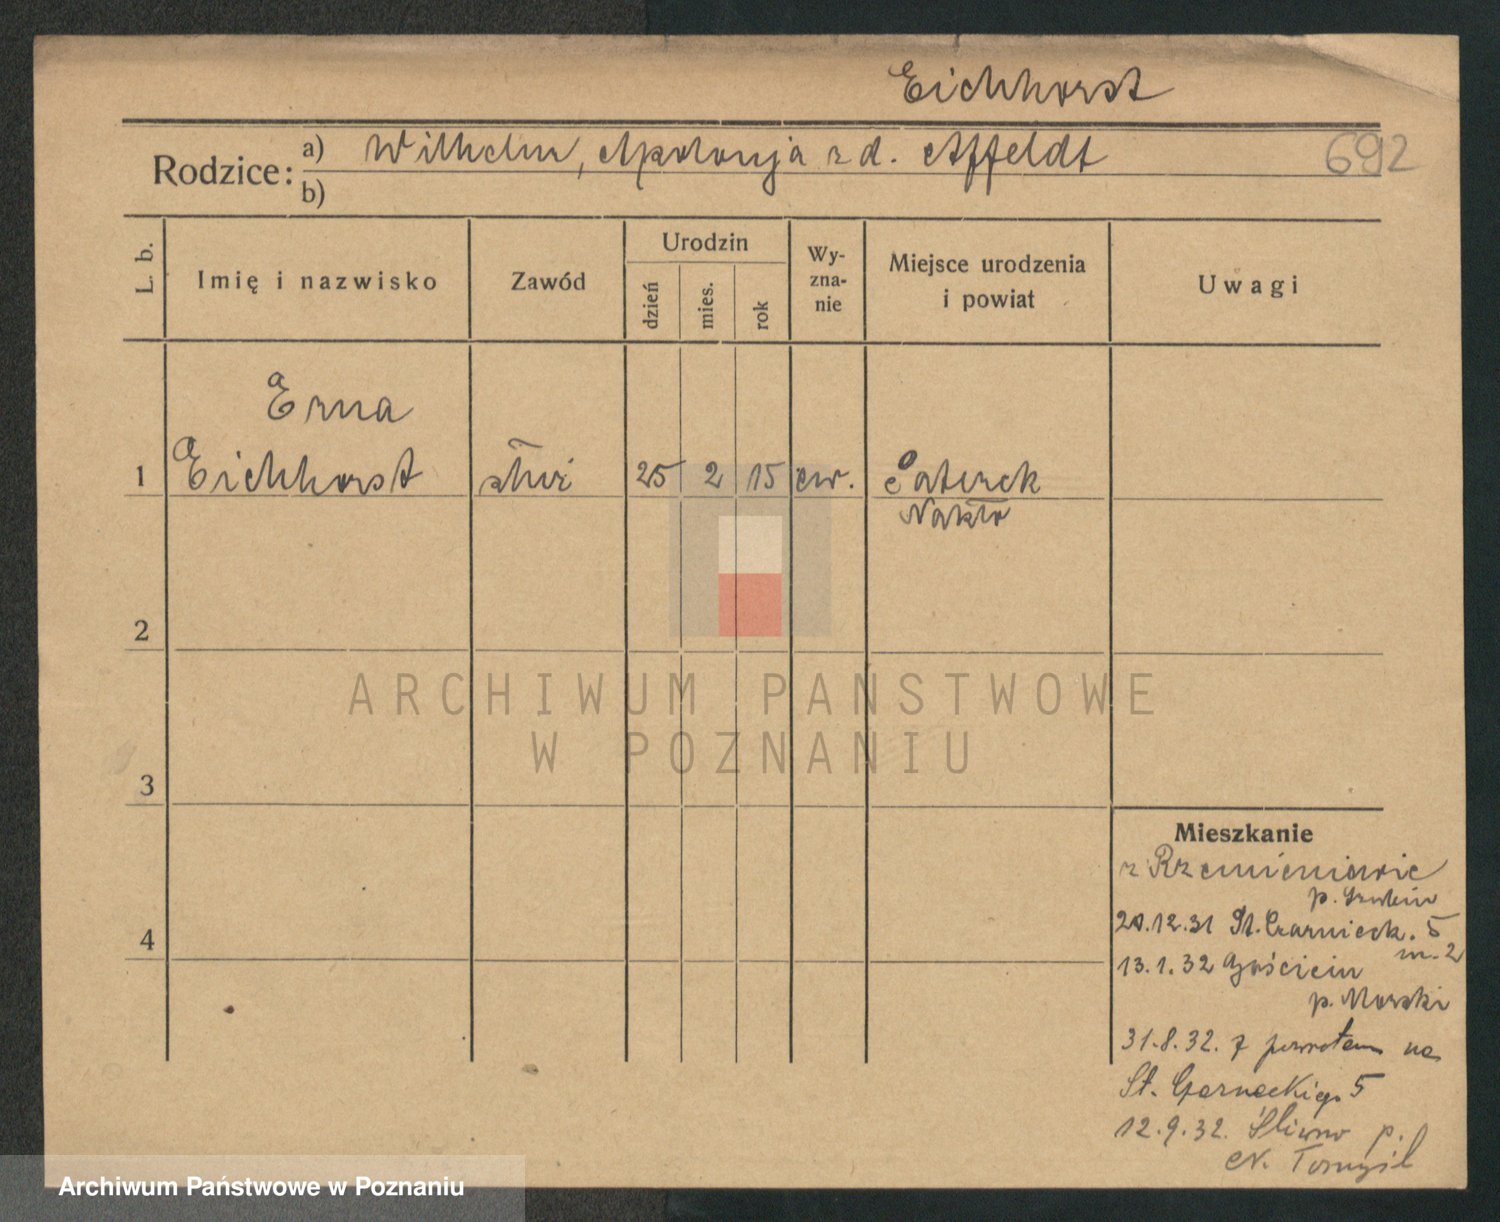 Eichhorst
Rodzice:
a) Wilhelm, Apolonja z d. Affeldt
692
b)
L. b.
Imię i nazwisko
Zawód
Urodzin
dzień
mies.
rok
Wy-
zna-
nie
Miejsce urodzenia
i powiat
Uwagi
Erna
1 Eichhorst służ 25 2 15 ew. Paterek
Nakło
2
3
4
ARCHIWUM PAŃSTWOWE
W POZNANIU
Mieszkanie
z Rzemieniowic
p. Szubin
20.12.31 St. Czarnieck. 5
m. 2
13.1.32 Gościcin
p. Morski
31.8.32. z powrotem na
St. Czarneckieg. 5
12.9.32. Śliwno p.
N. Tomyśl
Archiwum Państwowe w Poznaniu